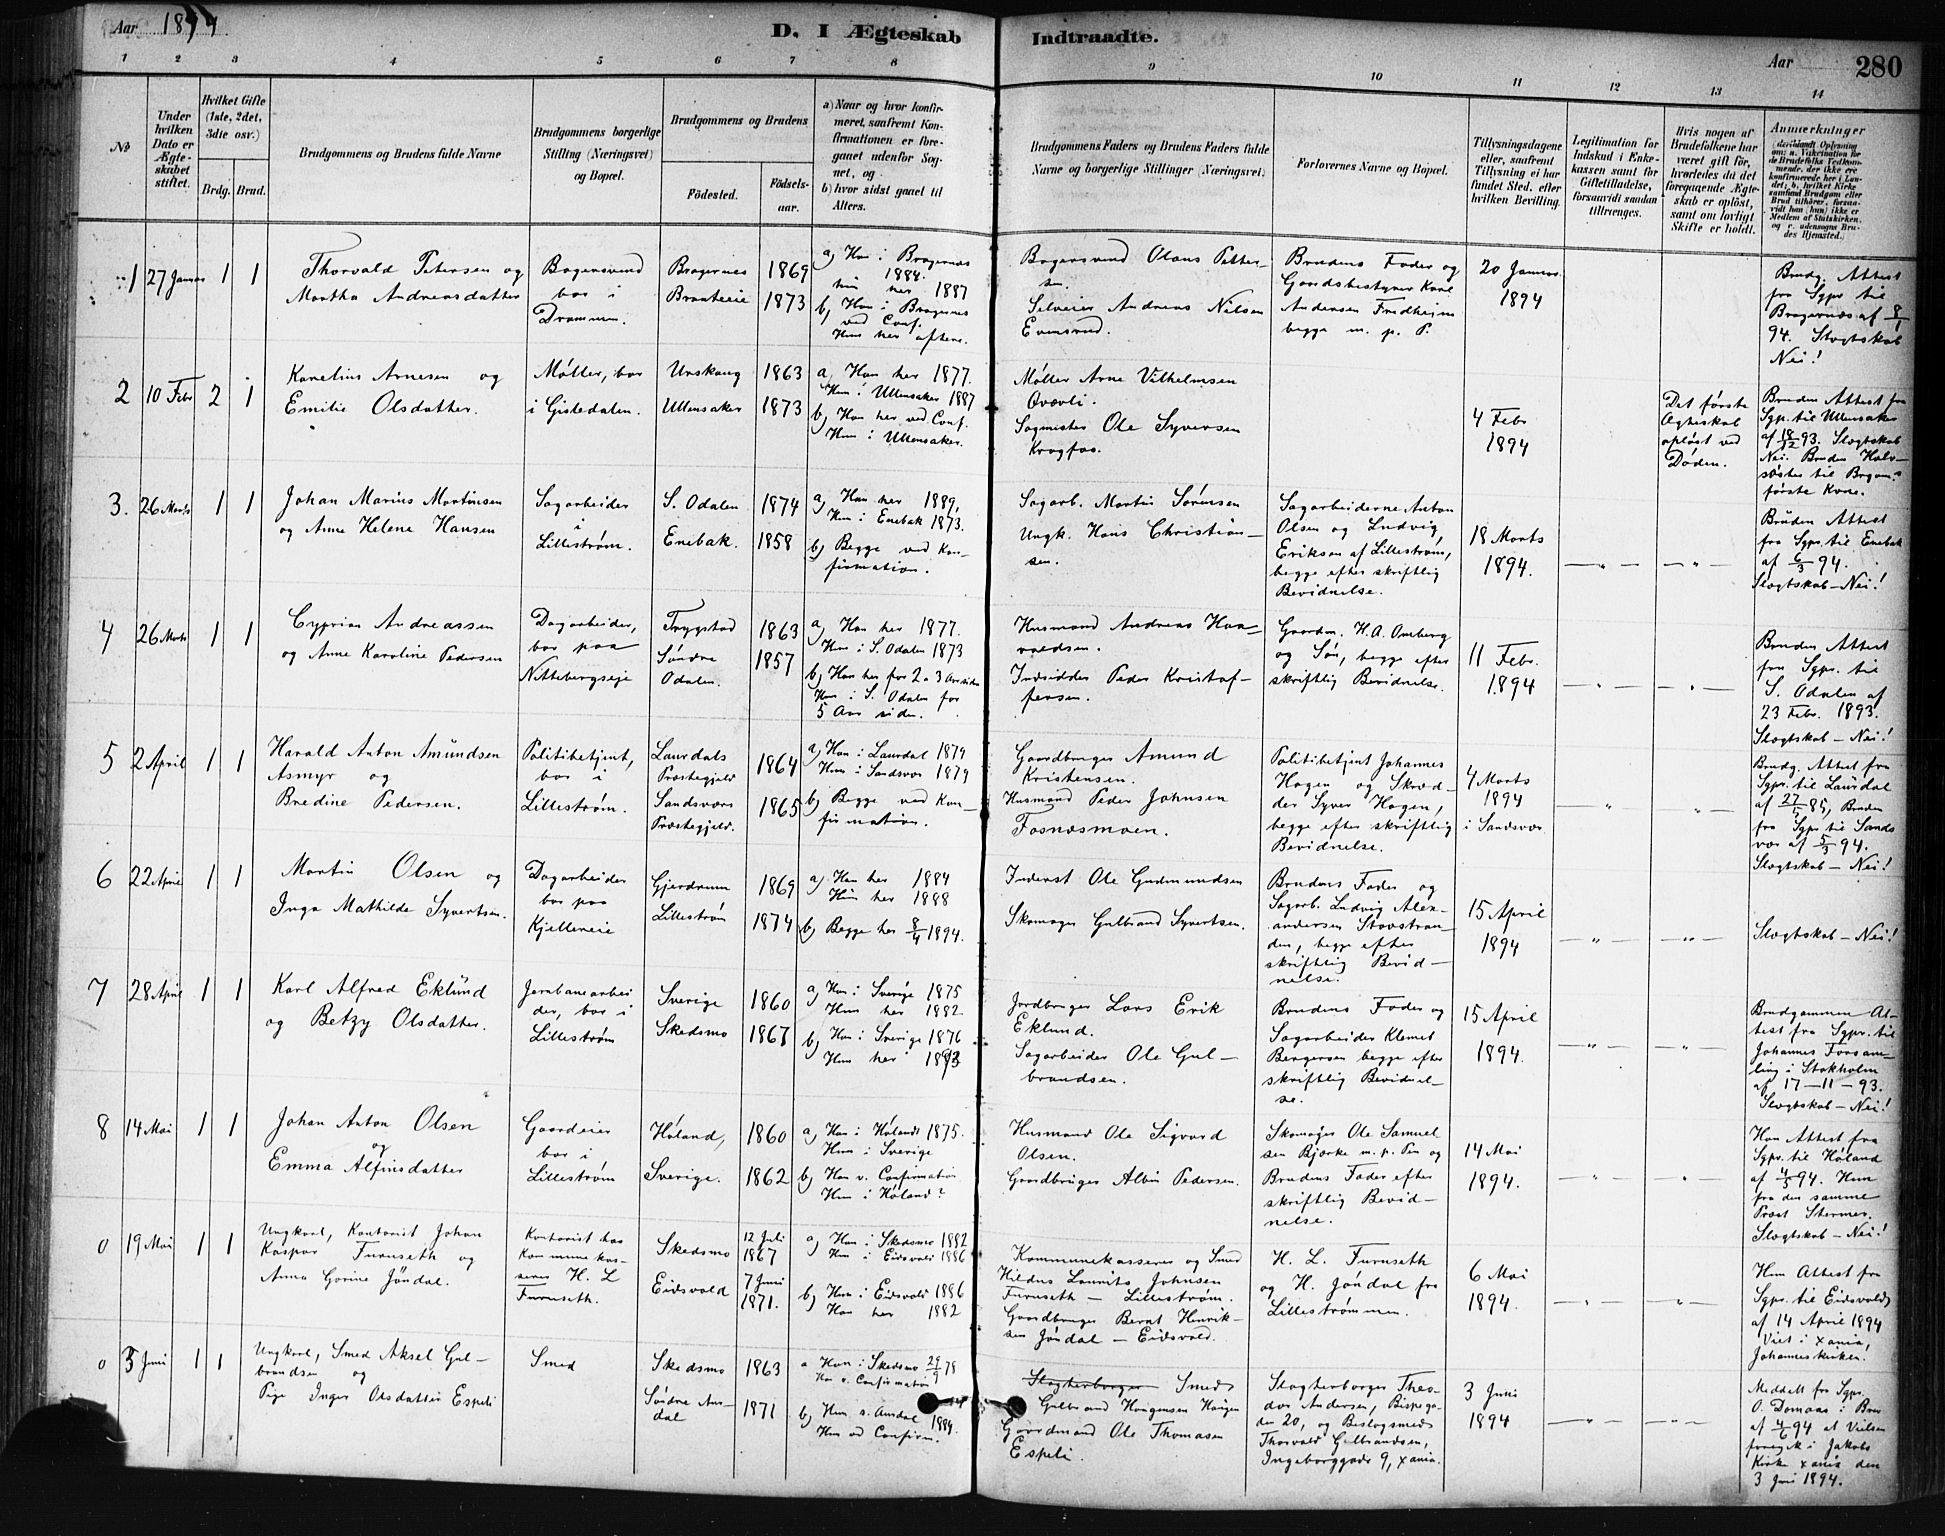 Aar 1894.
D. I Ægteskab
Indtraadte.
Aar
280
1 2 3 4 5 6 7 8 9 10 11 12 13 14
No
Under hvilken Dato er Ægteskabet stiftet.
Hvilket Gifte (1ste, 2det, 3die osv.)
Brdg. Brud.
Brudgommens og Brudens fulde Navne
Brudgommens borgerlige Stilling (Næringsvei) og Bopæl.
Brudgommens og Brudens
Fødested.
Fødselsaar.
a) Naar og hvor konfirmeret, saafremt Konfirmationen er foregaaet udenfor Sognet, og
b) hvor sidst gaaet til Alters.
Brudgommens Faders og Brudens Faders fulde Navne og borgerlige Stillinger (Næringsvei)
Forlovernes Navne og Bopæl.
Tillysningsdagene eller, saafremt Tillysning ei har fundet Sted, efter hvilken Bevilling.
Legitimation for Indskud i Enkekassen samt for Giftetilladelse, forsaavidt saadan tiltrænges.
Hvis nogen af Brudefolkene har været gift før, hvorledes da det foregaaende Ægteskab er opløst, samt om lovligt Skifte er holdt.
Anmærkninger
1
27 Januar
1 1
Thorvald Petersen og
Martha Andreasdatter
Bogersvend
bor i
Drammen.
Bragernes
Braateeie
1869
1873
a) Han i Bragernes
1884.
hun her 1887
b) Han i Bragernes
ved Conf.
Hun her oftere.
Bogersvend Olaus Petter-
sen.
Selveier Andreas Nilsen
Evensrud.
Brudens Fader og
Gaardsbestyrer Karl
Andersen Fredheim
begge m. p. P.
20 Januar
1894
Brudg. Attest
fra Sgpr til
Bragernæs af 8/1
94. Slægtskab
Nei!
2
10 Febr
2 1
Karelius Arnesen og
Emilie Olsdatter.
Møller, bor
i Gistedalen.
Urskoug
Ullensaker
1863
1873
a) Han her 1877.
Hun i Ullensaker 1887
b) Han her ved Conf.
Hun i Ullensaker.
Møller Arne Vilhelmsen
Sagmester Ole Syversen
Krogfos.
4 Febr
1894
Det første
Ægteskab
opløst ved
Døden.
Bruden Attest fra
Sgp. til Ullensaker
af 18/12 93. Slægtskab
Nei. Bruden Halv-
søster til Brgom.s
første Kone.
3.
26 Marts
1 1
Johan Marius Martinsen
og Anne Helene Hansen
Sagarbeider
i
Lillestrøm.
S. Odalen
Enebak.
1874
1858
a) Han her 1889,
Hun i Enebak 1873.
b) Begge ved Kon-
firmation.
Sagarb. Martin Sørensen
Ungk. Hans Christian-
sen.
Sagarbeiderne Anton
Olsen og Ludvig
Eriksen af Lillestrøm,
begge efter skriftlig
Bevidnelse.
18 Marts
1894.
— " — — " —
Bruden Attest
fra Sgpr. til Enebak
af 6/3 94.
Slægtskab – Nei!
4
26 Marts
1 1
Cyprian Andreassen
og Anne Karoline Pedersen
Dagarbeider,
bor paa
Nittebergseje
Trygstad
Søndre
Odalen.
1863
1857
a) Han her 1877.
Hun i S. Odalen 1873
b) Han her for 2 a 3 Aar siden
Hun i S. Odalen for
5 Aar siden.
Husmand Andreas Haa-
valdsen.
Indsidder Peder Kristof-
fersen.
Gaardm. H. A. Omberg
og Søn, begge efter
skriftlig Bevidnelse.
11 Febr.
1894
— " — — " —
Bruden Attest
fra Sgpr. til
S. Odalen af
23 Febr. 1893.
Slægtskab – Nei!
5
2 April
1 1
Harald Anton Amundsen
Asmyr og
Bredine Pedersen.
Politibetjent,
bor i
Lillestrøm.
Laurdals
Præstegjeld
Sandsvørs
Præstegjeld.
1864
1865
a) Han i Laurdal 1879
Hun i Sandsvør 1879
b) Begge ved Kon-
firmation.
Gaardbruger Amund
Kristensen.
Husmand Peder Johnsen
Fosnæsmoen.
Politibetjent Johannes
Hagen og Skræd-
der Syver Hagen,
begge efter skriftlig
Bevidnelse.
4 Marts
1894
i Sandsvær
Brudg. Attest fra
Sgpr. til Laurdal
af 27/5 85, Bruden
fra Sgpr. til Sands
vær af 5/3 94.
Slægtskab – Nei!
6
22 April
1 1
Martin Olsen og
Inga Mathilde Syvertsen.
Dagarbeider
bor paa
Kjellereie
Gjerdrum
Lillestrøm
1869
1874
a) Han her 1884
Hun her 1888
b) Begge her 8/4 1894.
Inderst Ole Gudmundsen
Skomager Gulbrand Syvertsen.
Brudens Fader og
Sagarb. Ludvig Alex-
andersen Stavstran-
den, begge efter
skriftlig Bevid-
nelse.
15 April
1894
— " — — " —
Slægtskab – Nei!
7
28 April
1 1
Karl Alfred Eklund
og Betzy Olsdatter.
Jernbanearbei
der, bor i
Lillestrøm
Sverige
Skedsmo
1860
1867
a) Han i Sverige 1875
Hun her 1882
b) Han i Sverige 1876
Hun her 1893
Jordbruger Lars Erik
Eklund.
Sagarbeider Ole Gul-
brandsen.
Brudens Fader og
Sagarbeider Klemet
Bergersen begge efter
skriftlig Bevidnel-
se.
15 April
1894.
— " — — " —
Brudgommen At-
test fra Sgpr. til
Johannes Forsam-
ling i Stokholm
af 17–11–93.
Slægtskab – Nei!
8
14 Mai
1 1
Johan Anton Olsen
og
Emma Alfinsdatter
Gaardeier
bor i
Lillestrøm
Høland,
Sverige.
1860
1862
a) Han i Høland 1875.
Hun i Sverige
b) Han v. Confirmation
Hun i Høland?
Husmand Ole Sigvard
Olsen.
Gaardbruger Albin Pedersen.
Skomager Ole Samuel
sen Bjørke m. p. Pen og
Brudens Fader efter
skriftlig Bevid-
nelse.
14 Mai
1894.
— " — — " —
Han Attest fra
Sgpr. til Høland
af 4/5 94. Hun
fra den samme
Prost Stermer.
Slægtskab – Nei!
0
19 Mai
1 1
Ungkarl, Kontorist Johan
Kaspar Furuseth og
Anna Gorine Jøndal.
Kontorist hos
Kommunekas-
serer H. L
Furuseth.
Skedsmo
Eidsvold
12 Juli
1867
7 Juni
1871.
a) Han i Skedsmo 1882
Hun i Eidsvold 1886
b) Hun i Eidsvold 1886
Han her 1882
Kommunekasserer og Smed
Hildus Laurits Johnsen
Furuseth – Lillestrøm.
Gaardbruger Bernt Henrik-
sen Jøndal – Eidsvold.
H. L. Furuseth
og H. Jøndal fra
Lillestrømmen.
6 Mai
1894.
— " — — " —
Hun Attest fra
Sgpr. til Eidsvold
af 14 April 1894
Viet i Xania,
Johanneskirken.
0
3 Juni
1 1
Ungkarl, Smed Aksel Gul-
brandsen og
Pige Inger Olsdatter Espeli
Smed
Skedsmo
Søndre Aur-
dal
1863
1871
a Han i Skedsmo 29/9 78
Han v. Confirmation
b) Hun s. Aurdal 1889.
Hun ved Confirm.
Slagterborger Smed
Gulbrand Haagensen Haugen
Gaardmand Ole Thomasen
Espeli
Slagterborger Theo-
dor Andersen, Bispega-
den 20, og Beslagsmed
Thorvald Gulbrandsen,
Ingeborggade 9, Xania.
3 Juni
1894
— " — — " —
Meddelt fra Sgpr.
O. Domaas i Brev
af 4/6 94 at Vielsen
foregik i Jakobs
Kirke Xania den
3 Juni 1894.